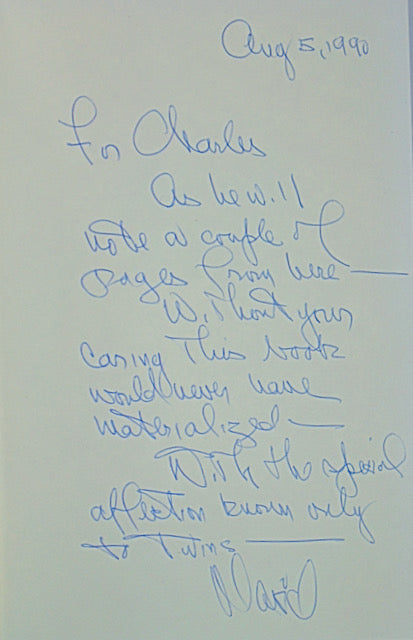 Aug 5, 1990
For Charles
As he will
note a couple of
pages from here —
Without your
caring This book
would never have
materialized —
With the special
affection known only
to Twins —
David